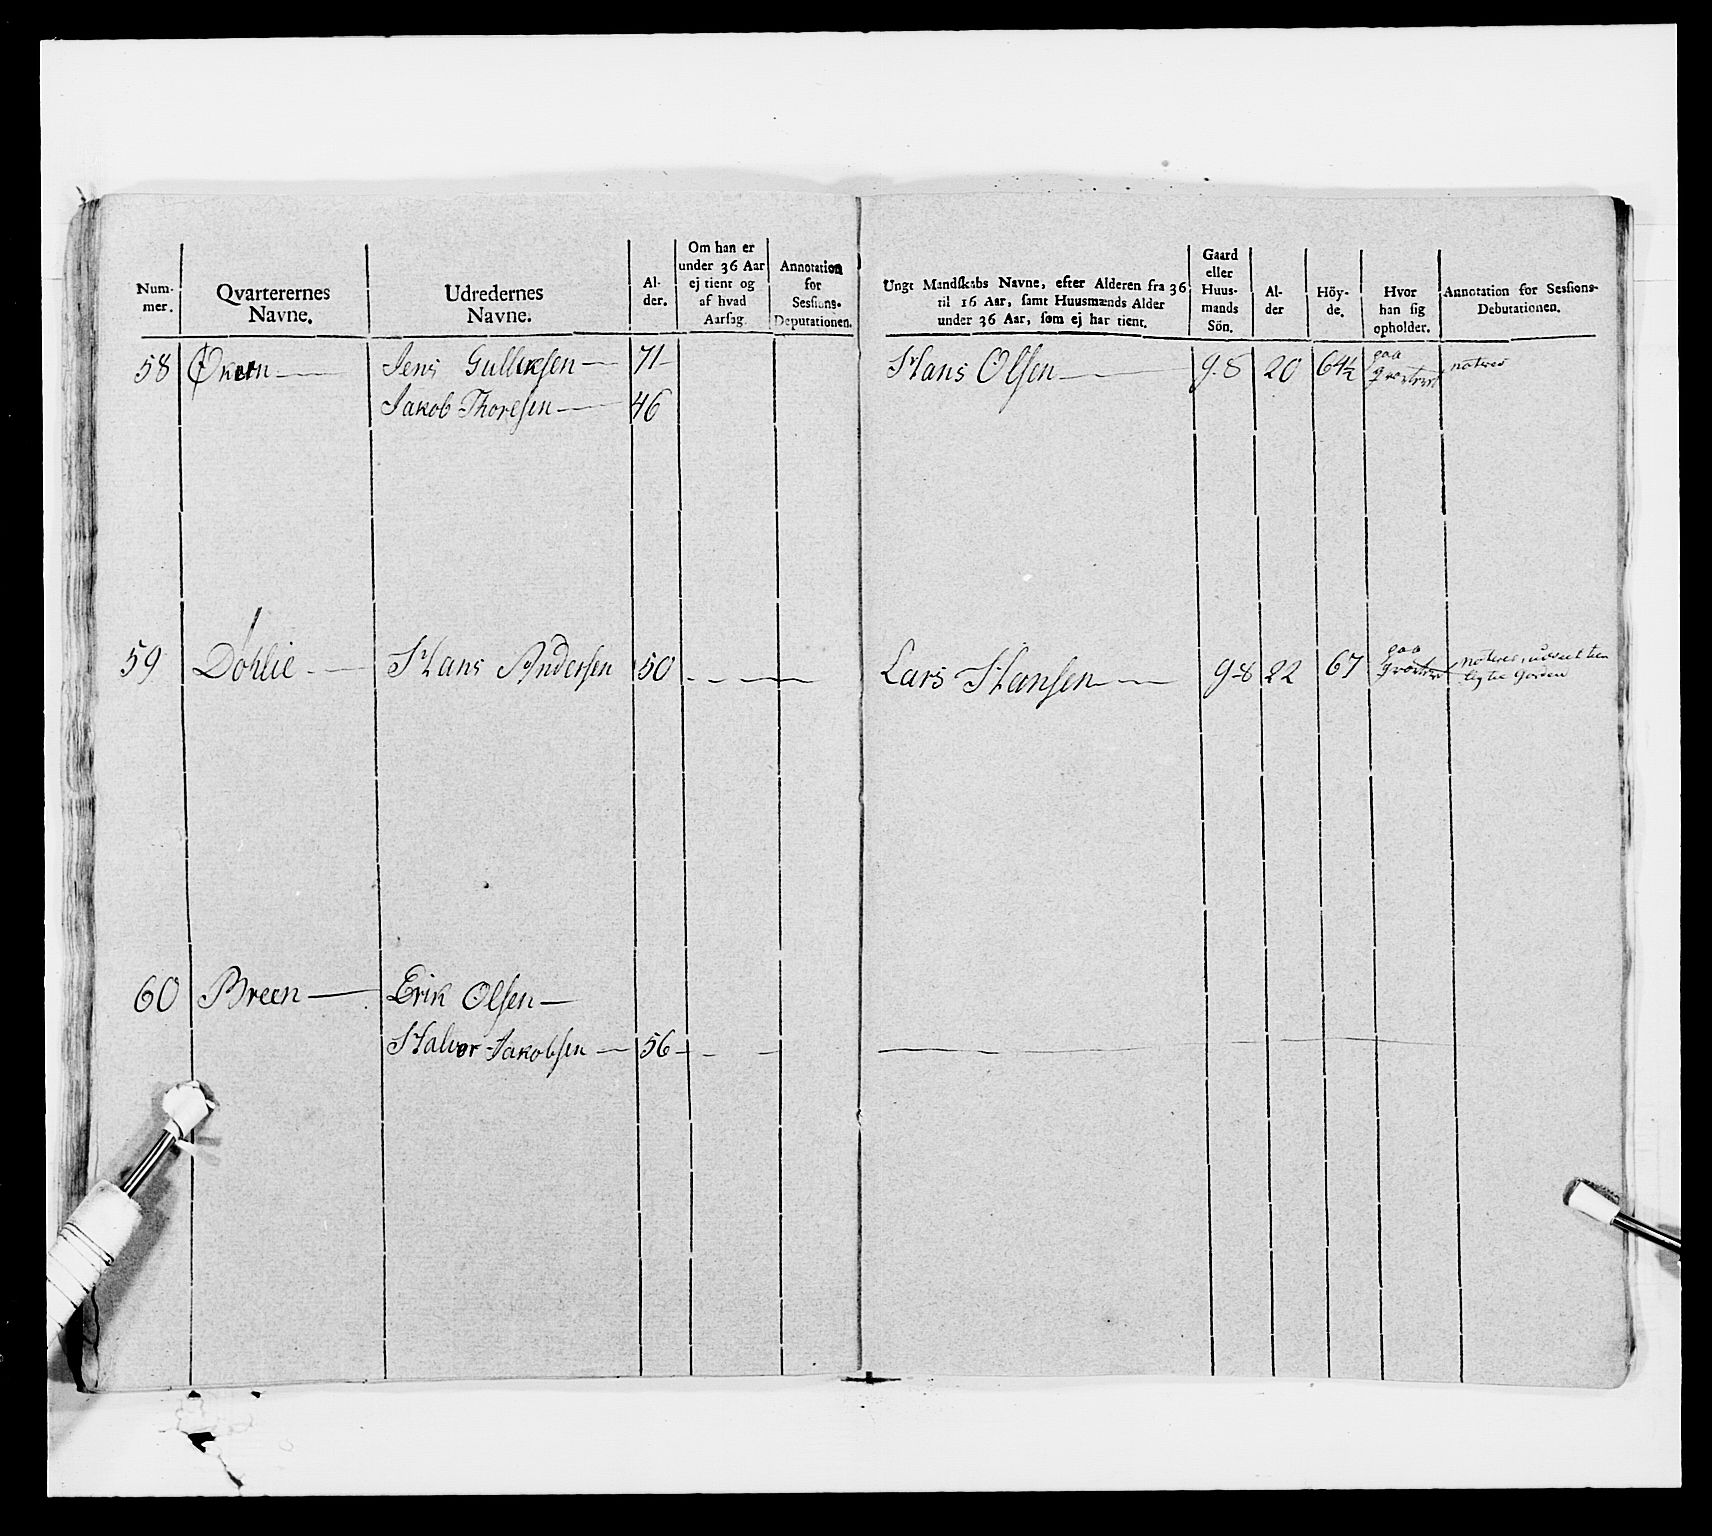 Num-
mer.
Qvarterernes
Navne.
Udredernes
Navne.
Al-
der.
Om han er
under 36 Aar
ej tient og
af hvad
Aarsag.
Annotation
for
Sessions-
Deputationen.
Ungt Mandskabs Navne, efter Alderen fra 36
til 16 Aar, samt Huusmænds Alder
under 36 Aar, som ej har tient.
Gaard
eller
Huus-
mands
Sön.
Al-
der
Höy-
de.
Hvor
han sig
opholder.
Annotation for Sessions-
Debutationen.
58 Økern Jens Gulliksen 71 Hans Olsen g. S 20 64½ paa noteres
Jakob Thoresen 46
59 Dohlie Hans Andersen 50 Lars Hansen g-S 22 67 paa
60 Breen Erik Olsen
Halvor Jakobsen 56